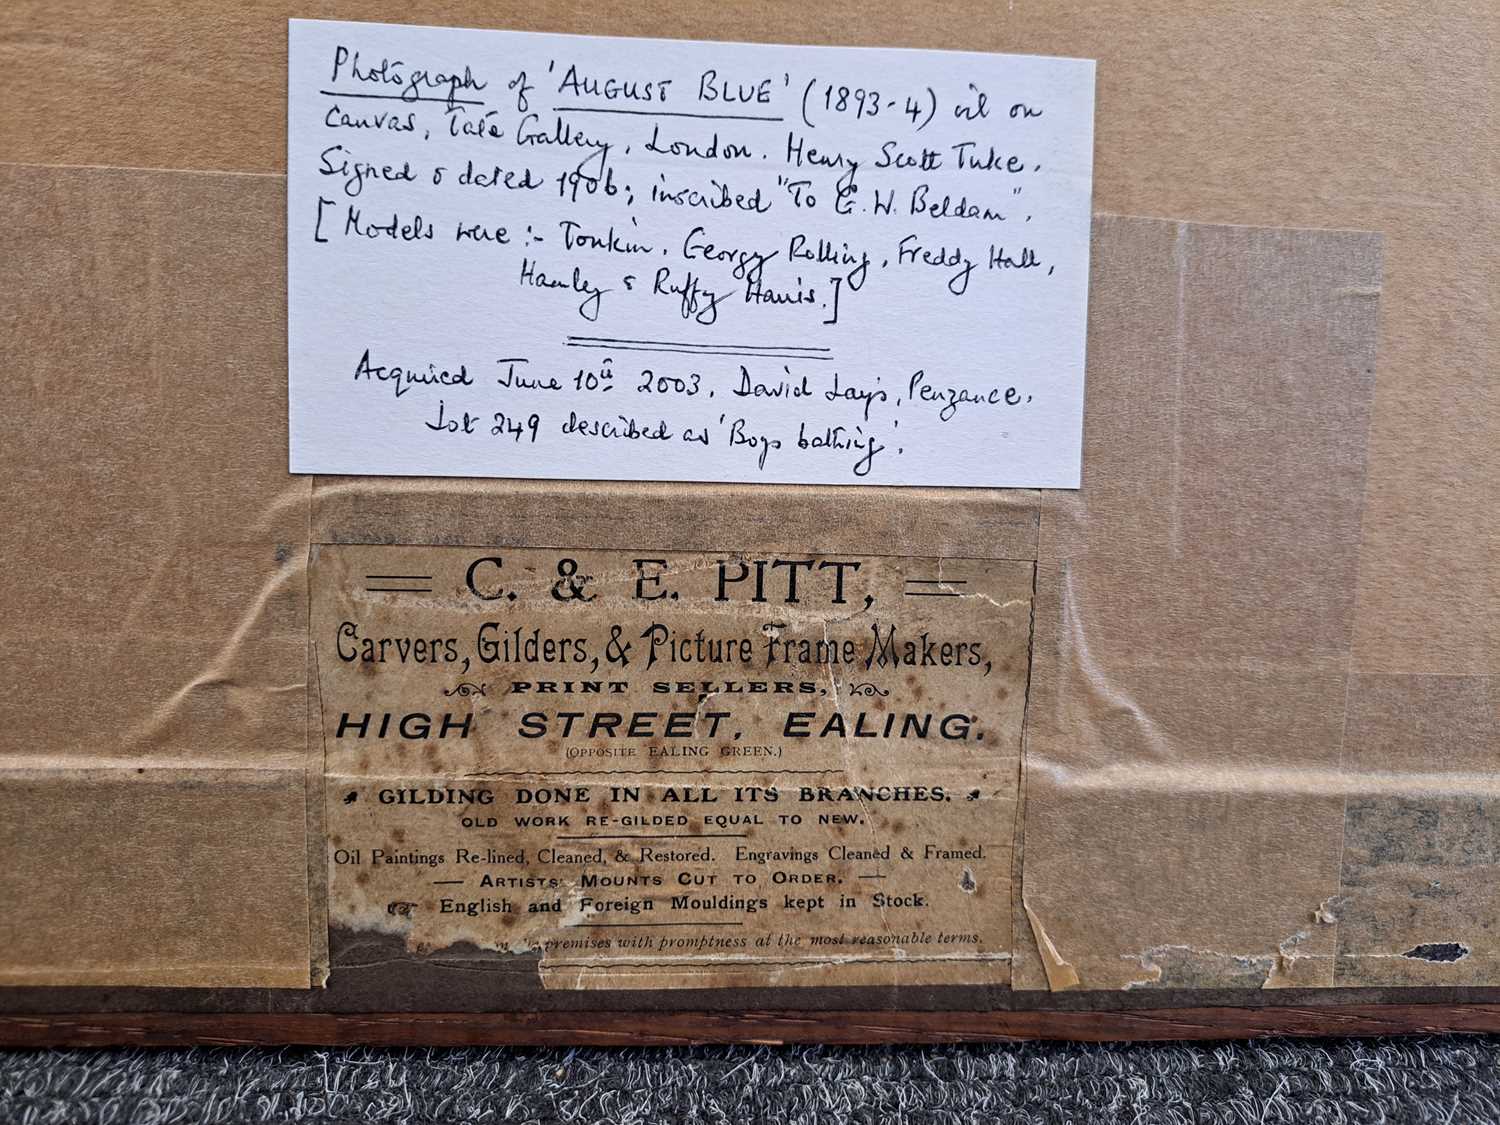 Photograph of 'AUGUST BLUE' (1893-4) oil on
canvas, Tate Gallery, London. Henry Scott Tuke.
Signed & dated 1906; inscribed "To G. W. Beldam".
[Models were :- Tonkin, Georgy Rolling, Freddy Hall,
Hamley & Ruffy Harris.]
Acquired June 10th 2003, David Lay's, Penzance.
Lot 249 described as 'Boys bathing'.
C. & E. PITT,
Carvers, Gilders, & Picture Frame Makers,
PRINT SELLERS,
HIGH STREET, EALING.
(OPPOSITE EALING GREEN.)
GILDING DONE IN ALL ITS BRANCHES.
OLD WORK RE-GILDED EQUAL TO NEW.
Oil Paintings Re-lined, Cleaned, & Restored. Engravings Cleaned & Framed.
ARTISTS' MOUNTS CUT TO ORDER.
English and Foreign Mouldings kept in Stock.
premises with promptness at the most reasonable terms.